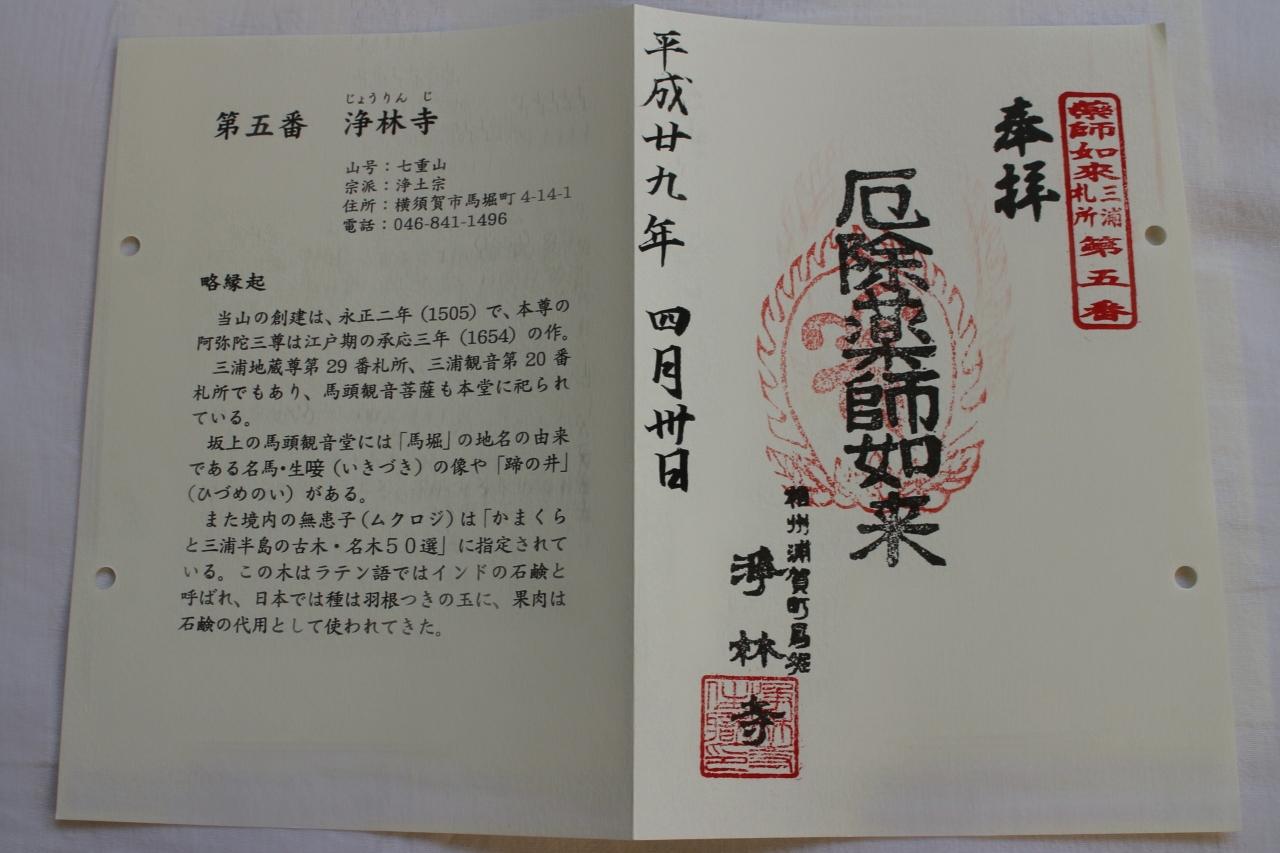 じょうりんじ
第五番 浄林寺
山号：七重山
宗派：浄土宗
住所：横須賀市馬堀町4-14-1
電話：046-841-1496
略縁起
当山の創建は、永正二年（1505）で、本尊の
阿弥陀三尊は江戸期の承応三年（1654）の作。
三浦地蔵尊第29番札所、三浦観音第20番
札所でもあり、馬頭観音菩薩も本堂に祀られ
ている。
坂上の馬頭観音堂には「馬堀」の地名の由来
である名馬・生唼（いきづき）の像や「蹄の井」
（ひづめのい）がある。
また境内の無患子（ムクロジ）は「かまくら
と三浦半島の古木・名木５０選」に指定されて
いる。この木はラテン語ではインドの石鹸と
呼ばれ、日本では種は羽根つきの玉に、果肉は
石鹸の代用として使われてきた。
薬師如来三浦札所第五番
奉拝
厄除薬師如来
相州浦賀町馬堀
浄林寺
平成廿九年 四月卅日